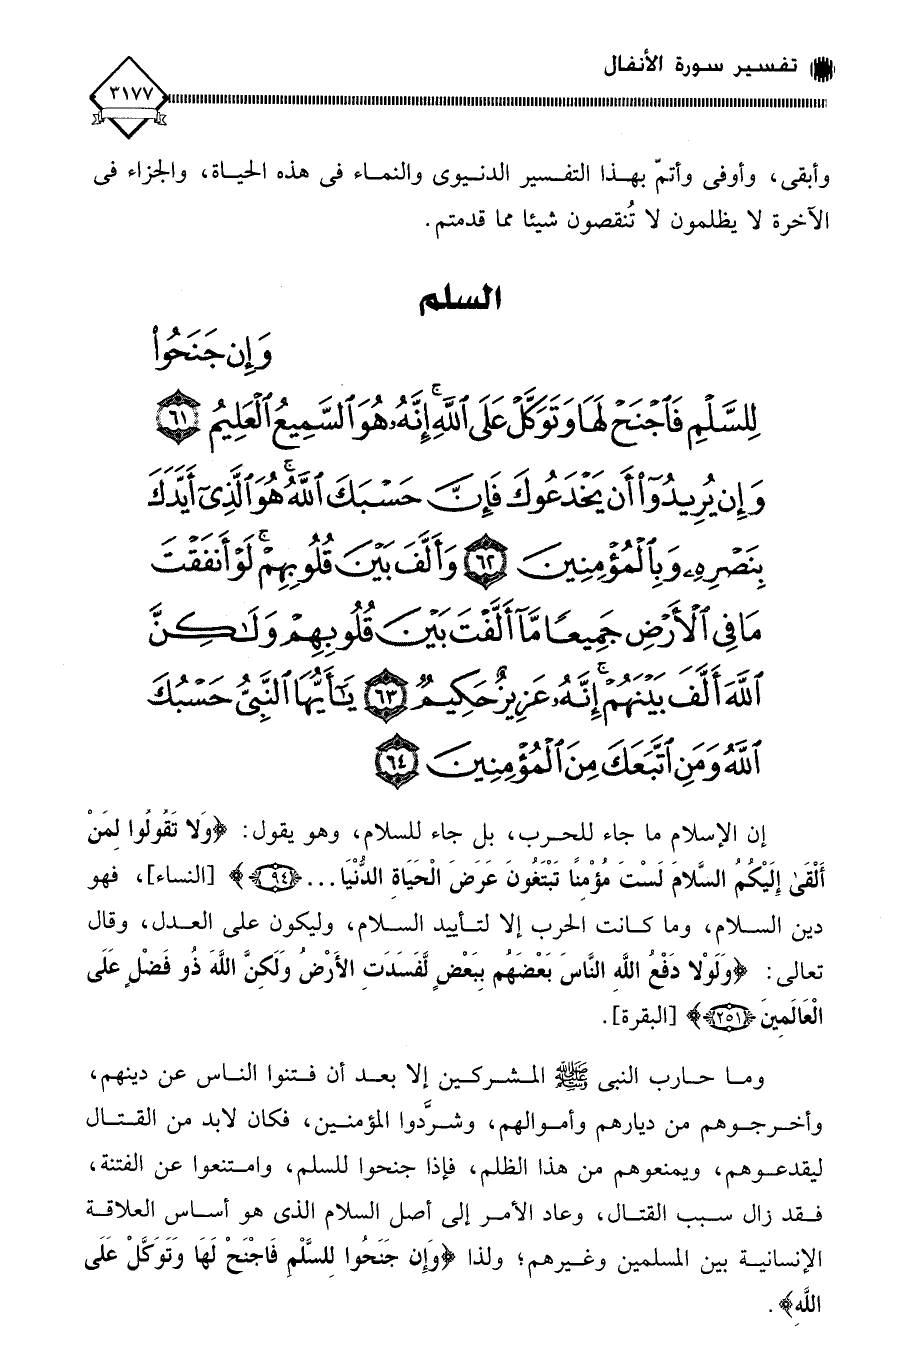 تفسير سورة الأنفال
٣١٧٧
وأبقى، وأوفى وأتمّ بهذا التفسير الدنيوى والنماء فى هذه الحياة، والجزاء فى
الآخرة لا يظلمون لا تُنقصون شيئا مما قدمتم.
السلم
وَإِن جَنَحُوا۟
لِلسَّلْمِ فَٱجْنَحْ لَهَا وَتَوَكَّلْ عَلَى ٱللَّهِ ۚ إِنَّهُۥ هُوَ ٱلسَّمِيعُ ٱلْعَلِيمُ ٦١
وَإِن يُرِيدُوٓا۟ أَن يَخْدَعُوكَ فَإِنَّ حَسْبَكَ ٱللَّهُ ۚ هُوَ ٱلَّذِىٓ أَيَّدَكَ
بِنَصْرِهِۦ وَبِٱلْمُؤْمِنِينَ ٦٢ وَأَلَّفَ بَيْنَ قُلُوبِهِمْ ۚ لَوْ أَنفَقْتَ
مَا فِى ٱلْأَرْضِ جَمِيعًا مَّآ أَلَّفْتَ بَيْنَ قُلُوبِهِمْ وَلَٰكِنَّ
ٱللَّهَ أَلَّفَ بَيْنَهُمْ ۚ إِنَّهُۥ عَزِيزٌ حَكِيمٌ ٦٣ يَٰٓأَيُّهَا ٱلنَّبِىُّ حَسْبُكَ
ٱللَّهُ وَمَنِ ٱتَّبَعَكَ مِنَ ٱلْمُؤْمِنِينَ ٦٤
إن الإسلام ما جاء للحرب، بل جاء للسلام، وهو يقول: ﴿وَلا تَقُولُوا لِمَنْ
أَلْقَىٰ إِلَيْكُمُ السَّلامَ لَسْتَ مُؤْمِنًا تَبْتَغُونَ عَرَضَ الْحَيَاةِ الدُّنْيَا... ﴿٩٤﴾﴾ [النساء]، فهو
دين السلام، وما كانت الحرب إلا لتأييد السلام، وليكون على العدل، وقال
تعالى: ﴿وَلَوْلا دَفْعُ اللَّهِ النَّاسَ بَعْضَهُم بِبَعْضٍ لَّفَسَدَتِ الأَرْضُ وَلَكِنَّ اللَّهَ ذُو فَضْلٍ عَلَى
الْعَالَمِينَ ﴿٢٥١﴾﴾ [البقرة].
وما حارب النبى ﷺ المشركين إلا بعد أن فتنوا الناس عن دينهم،
وأخرجوهم من ديارهم وأموالهم، وشرَّدوا المؤمنين، فكان لابد من القتال
ليقدعوهم، ويمنعوهم من هذا الظلم، فإذا جنحوا للسلم، وامتنعوا عن الفتنة،
فقد زال سبب القتال، وعاد الأمر إلى أصل السلام الذى هو أساس العلاقة
الإنسانية بين المسلمين وغيرهم؛ ولذا ﴿وَإِن جَنَحُوا لِلسَّلْمِ فَاجْنَحْ لَهَا وَتَوَكَّلْ عَلَى
اللَّهِ﴾.